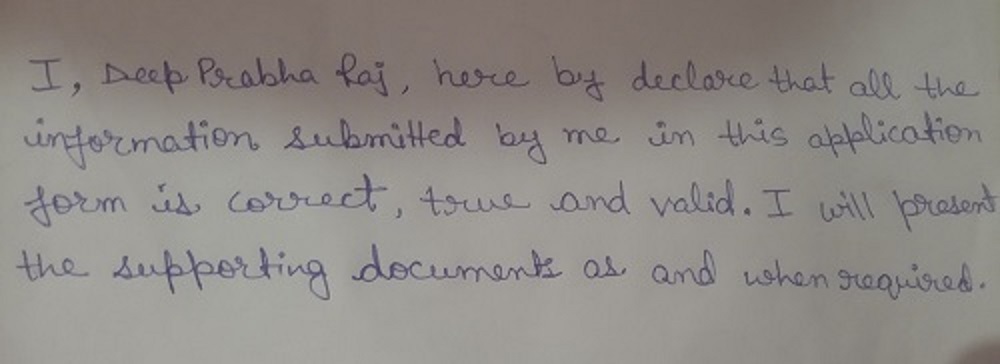 I, Deep Prabha Raj, here by declare that all the
information submitted by me in this application
form is correct, true and valid. I will present
the supporting documents as and when required.